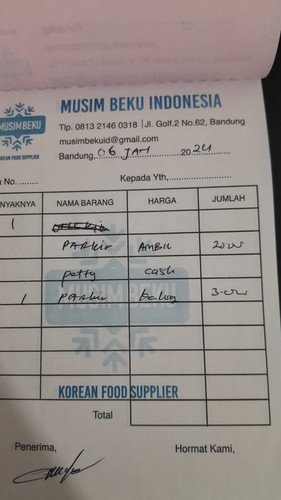 MUSIM BEKU INDONESIA
MUSIM BEKU
KOREAN FOOD SUPPLIER
Tlp. 0813 2146 0318 | Jl. Golf.2 No.62, Bandung
musimbekuid@gmail.com
Bandung, 06 JAN 2024
No. ........
Kepada Yth,
NYAKNYA NAMA BARANG HARGA JUMLAH
1
PARKIR AMBIL
petty cash
1 PARKIR
MUSIM BEKU
KOREAN FOOD SUPPLIER
Total
Penerima, Hormat Kami,